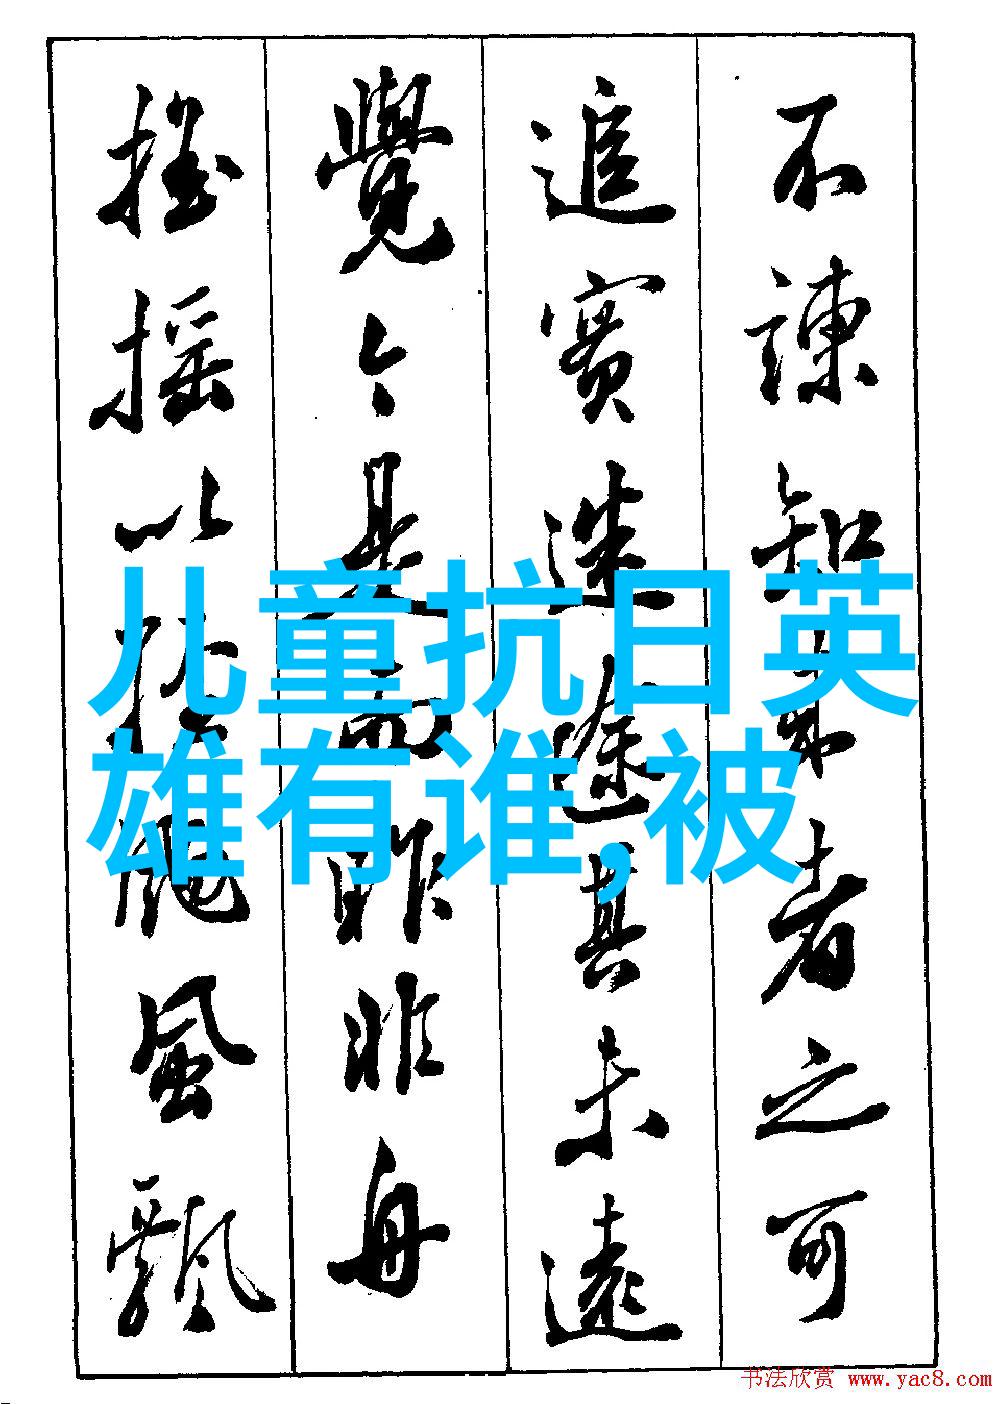 不諫知来者之可
追實迷途其未遠
覺今是而昨非舟
摇摇以輕颺風飄
儿童抗日英
雄有谁,被
书法欣赏 www.yac8.com